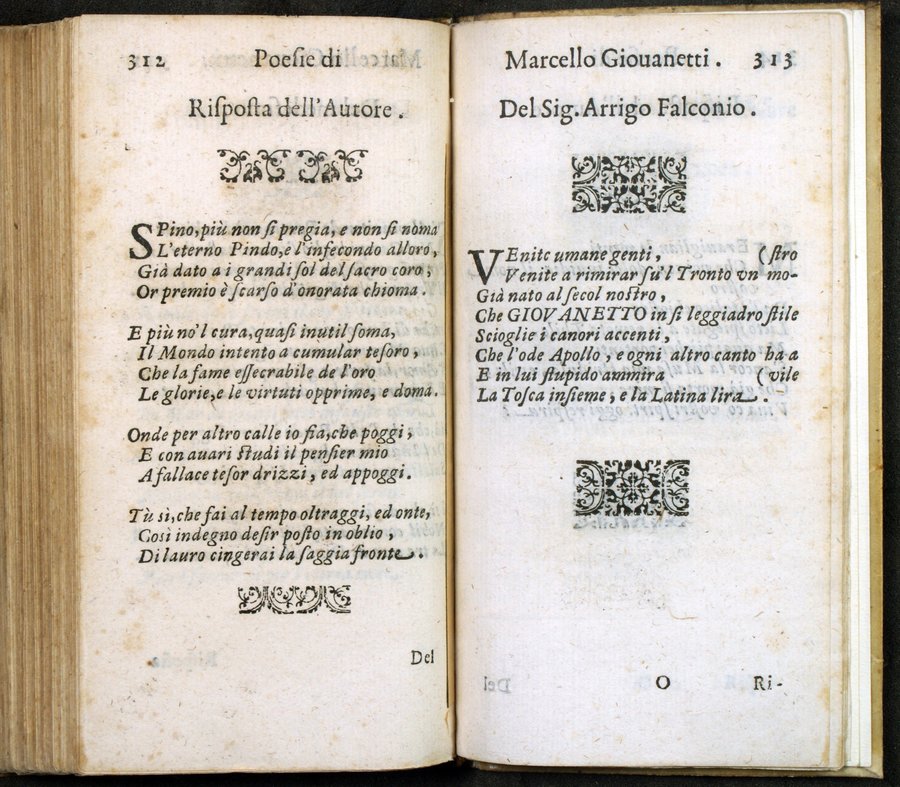 312 Poeſie di
Riſpoſta dell'Autore.
SPino, più non ſi pregia, e non ſi noma
L'eterno Pindo, e l'infecondo alloro,
Già dato a i grandi ſol del ſacro coro,
Or premio è ſcarſo d'onorata chioma.
E più no'l cura, quaſi inutil ſoma,
Il Mondo intento a cumular teſoro,
Che la fame eſſecrabile de l'oro
Le glorie, e le virtuti opprime, e doma.
Onde per altro calle io fia, che poggi,
E con auari ſtudi il penſier mio
A fallace teſor drizzi, ed appoggi.
Tù sì, che fai al tempo oltraggi, ed onte,
Così indegno deſir poſto in oblio,
Di lauro cingerai la ſaggia fronte.
Del
Marcello Giouanetti. 313
Del Sig. Arrigo Falconio.
VEnite umane genti, (ſtro
Venite a rimirar ſu'l Tronto vn mo-
Già nato al ſecol noſtro,
Che GIOVANETTO in ſi leggiadro ſtile
Scioglie i canori accenti,
Che l'ode Apollo, e ogni altro canto ha a
E in lui ſtupido ammira (vile
La Toſca inſieme, e la Latina lira.
O Ri-